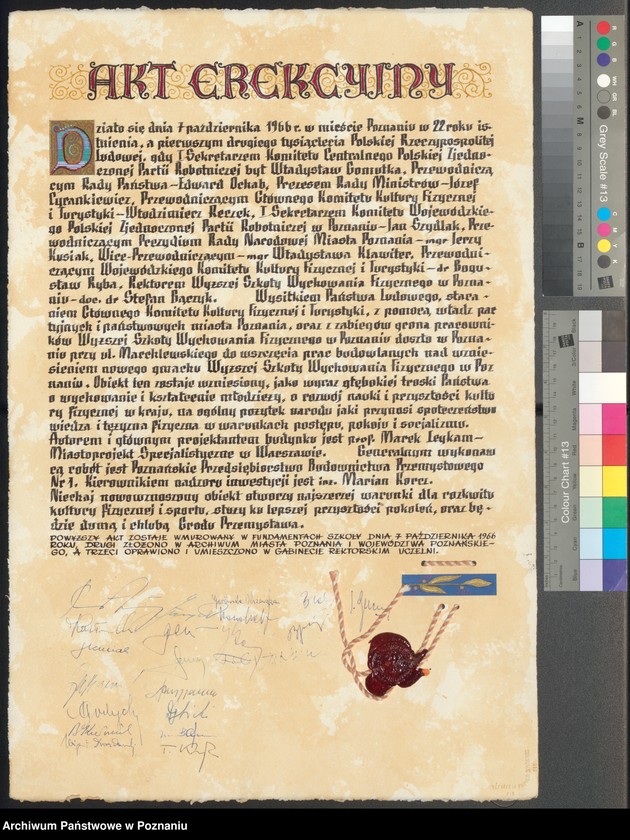 AKT EREKCYJNY
Działo się dnia 7 października 1966 r. w mieście Poznaniu w 22 roku is-
tnienia, a pierwszym drugiego tysiąclecia Polskiej Rzeczypospolitej
Ludowej, gdy I Sekretarzem Komitetu Centralnego Polskiej Zjedno-
czonej Partii Robotniczej był Władysław Gomułka, Przewodniczą
cym Rady Państwa-Edward Ochab, Prezesem Rady Ministrów-Józef
Cyrankiewicz, Przewodniczącym Głównego Komitetu Kultury Fizycznej
i Turystyki-Włodzimierz Reczek, I Sekretarzem Komitetu Wojewódzkie-
go Polskiej Zjednoczonej Partii Robotniczej w Poznaniu-Jan Szydlak, Prze-
wodniczącym Prezydium Rady Narodowej Miasta Poznania-mgr Jerzy
Kusiak, Wice-Przewodniczącym-mgr Władysława Klawiter, Przewodni-
czącym Wojewódzkiego Komitetu Kultury Fizycznej i Turystyki-dr Bogu-
sław Ryba, Rektorem Wyższej Szkoły Wychowania Fizycznego w Pozna-
niu-doc. dr Stefan Bączyk. Wysiłkiem Państwa Ludowego, stara-
niem Głównego Komitetu Kultury Fizycznej i Turystyki, z pomocą władz par
tyjnych i państwowych miasta Poznania, oraz z zabiegów grona pracowni-
ków Wyższej Szkoły Wychowania Fizycznego w Poznaniu doszło w Pozna-
niu przy ul. Marchlewskiego do wszczęcia prac budowlanych nad wznie-
sieniem nowego gmachu Wyższej Szkoły Wychowania Fizycznego w Poz
naniu. Obiekt ten zostaje wzniesiony, jako wyraz głębokiej troski Państwa
o wychowanie i kształcenie młodzieży, o rozwój nauki i przyszłości kultu
ry fizycznej w kraju, na ogólny pożytek narodu jaki przynosi społeczeństwu
wiedza i tężyzna fizyczna w warunkach postępu, pokoju i socjalizmu.
Autorem i głównym projektantem budynku jest prof. Marek Leykam-
Miastoprojekt Specjalistyczne w Warszawie. Generalnym wykonaw
cą robót jest Poznańskie Przedsiębiorstwo Budownictwa Przemysłowego
Nr 1. Kierownikiem nadzoru inwestycji jest inż. Marian Korcz.
Niechaj nowowznoszony obiekt stworzy najszerzej warunki dla rozkwitu
kultury fizycznej i sportu, służy ku lepszej przyszłości pokoleń, oraz bę-
dzie dumą i chlubą Grodu Przemysława.
POWYŻSZY AKT ZOSTAJE WMUROWANY W FUNDAMENTACH SZKOŁY DNIA 7 PAŹDZIERNIKA 1966
ROKU, DRUGI ZŁOŻONO W ARCHIWUM MIASTA POZNANIA I WOJEWÓDZTWA POZNAŃSKIE-
GO, A TRZECI OPRAWIONO I UMIESZCZONO W GABINECIE REKTORSKIM UCZELNI.
Grey Scale #13
Colour Chart #13
Archiwum Państwowe w Poznaniu